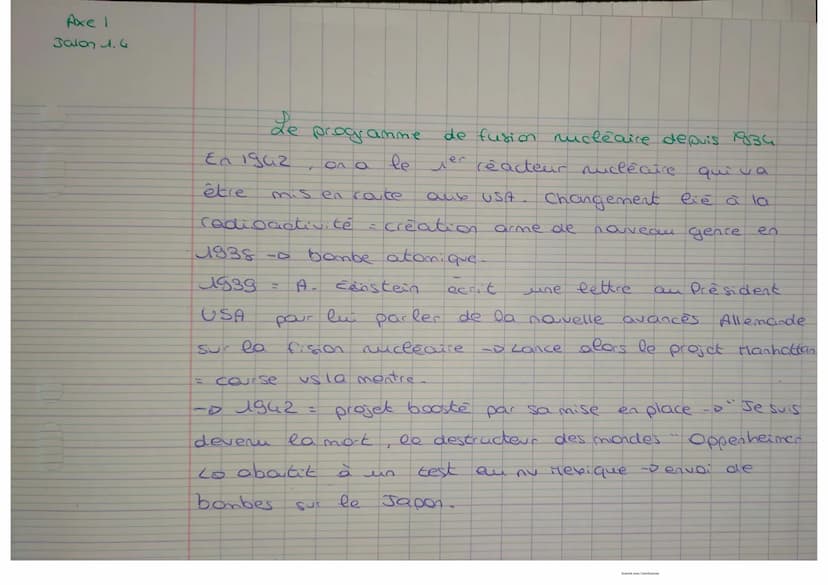 Axe 1
Jalon 1.4
Le programme de fusion nucléaire depuis 1934
En 1942, on a le 1er réacteur nucléaire qui va
être mis en route aux USA. Changement lié à la
radioactivité = création arme de nouveau genre en
1938 → bombe atomique.
1939 = A. Einstein écrit une lettre au Président
USA pour lui parler de la nouvelle avancés Allemande
sur la fision nucléaire → Lance alors le projet Manhattan
= course vs la montre.
→ 1942 = projet boosté par sa mise en place → "Je suis
devenu la mort, le destructeur des mondes" Oppenheimer
↳ abatit à un test au nv Mexique → envoi de
bombes sur le Japon.